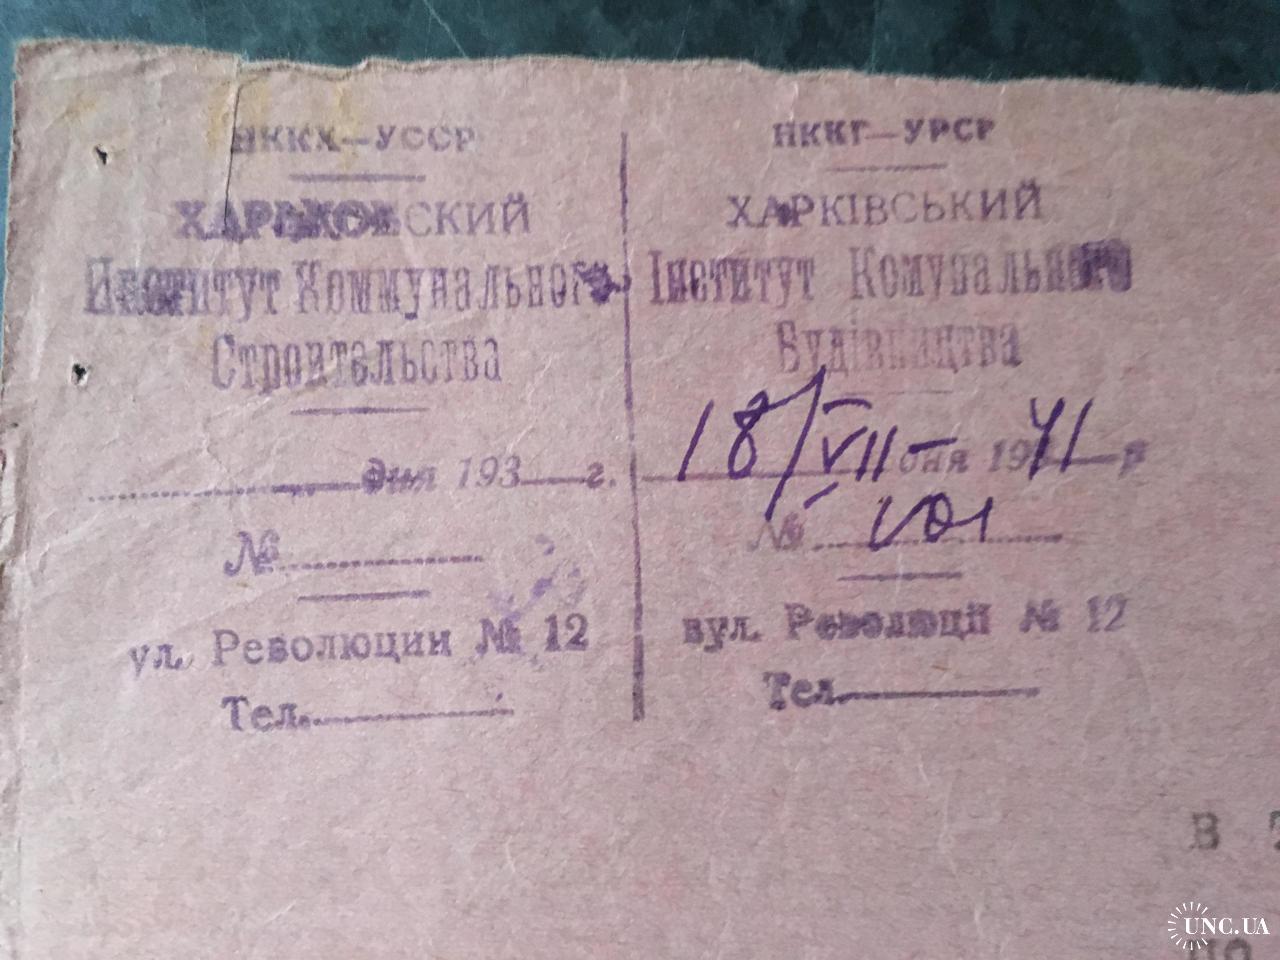 НККХ—УССР
ХАРЬКОВСКИЙ
Институт Коммунального
Строительства
дня 193 г.
№
ул. Революции № 12
Тел.
НККГ—УРСР
ХАРКІВСЬКИЙ
Інститут Комунального
Будівництва
18/VII дня 1941 р
№
вул. Революції № 12
Тел.
В
по
UNC.UA